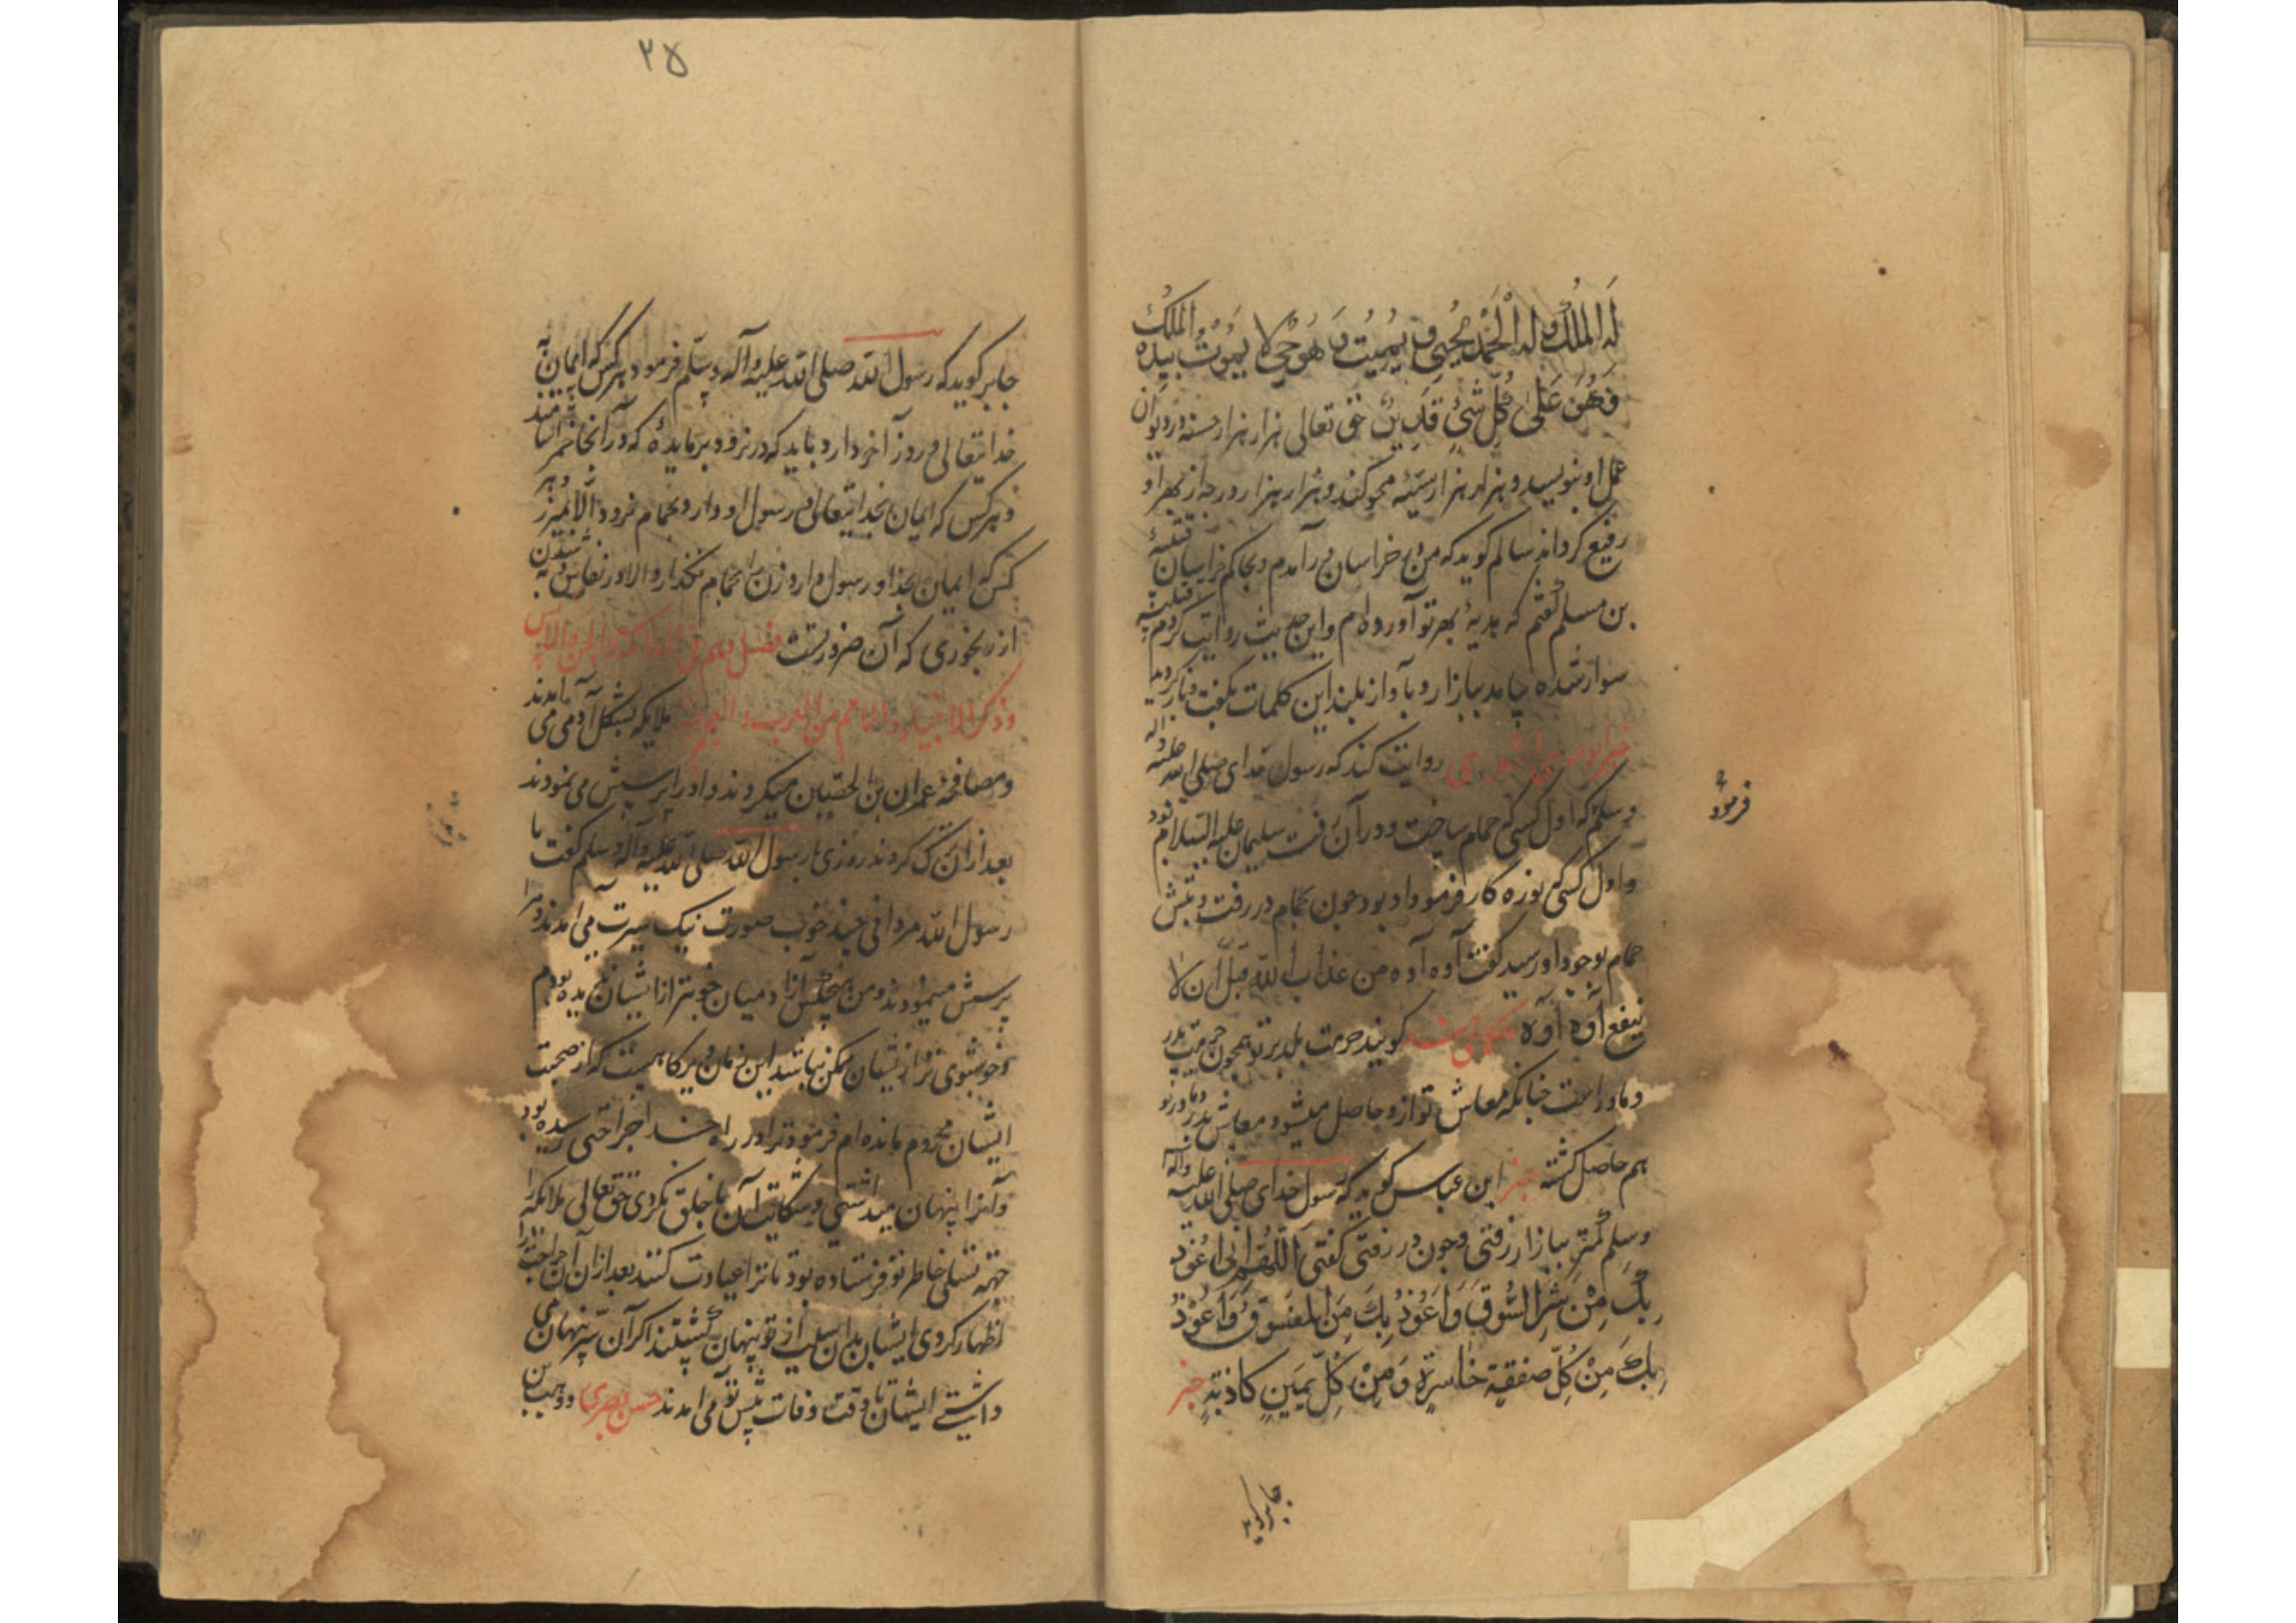 لَهُ المُلْكُ وَ لَهُ الْحَمْدُ يُحْيِي وَ يُمِيتُ وَ هُوَ حَيٌّ لا يَمُوْتُ بيده المُلكُ
فَهُوَ عَلَى كُلِّ شَيْءٍ قَدِيْرٌ حق تعالی هزار هزار حسنه در دیوان
عمل او بنویسد و هزار هزار سیئه محو کند و هزار هزار درجه از بهر او
رفیع کرداند سالم کوید که من به خراسان در آمدم و بحاکم خراسان قتیبهٔ
بن مسلم کفتم که هدیهٔ بهر تو آورده‌ام و این حدیث روایت کردم قتیبه
سوار شده ببازار و بآواز بلند این کلمات بکفت و باز کردید
خبر ابو موسی اشعری روایت کند که رسول خدای صلی الله علیه و آله
وسلم که اول کسی که حمام ساخت و در آن رفت سلیمان علیه السلام بود
و اول کسی که نوره کار فرمود او بود چون بحمام در رفت و تبش
حمام بوجود او رسید کفت آوه آوه من عذاب الله قبل ان لا
ینفع آوه آوه حکمای هند کویند حرمت بلد بر تو همچون حرمت پدر
و مادر است چنانکه معاش تو ازو حاصل میشود معاش پدر و مادر تو
هم حاصل کشته خبر ابن عباس کوید که رسول خدای صلی الله علیه و آله
وسلم کمتر ببازار رفتی و چون در رفتی کفتی اَللّٰهُمَّ اِنِّی اَعُوْذُ
بِكَ مِنْ شَرِّ السُّوقِ وَ اَعُوْذُ بِكَ مِنَ الفسوق وَ اَعُوْذُ
بِكَ مِنْ كُلِّ صفقة خَاسِرَةٍ وَ مِنْ كُلِّ يَمِينٍ كاذبةٍ خبر
فرموده
جابر کوید
۲۵
جابر کوید که رسول الله صلی الله علیه و آله وسلم فرمود هر کس که ایمان به
خدایتعالی و روز آخر دارد باید که در نرود بر مایدهٔ که در آنجا خمر آشامند
و هر کس که ایمان بخدایتعالی و رسول او دارد بحمام نرود الا بمیزر و هر
کس که ایمان بخدا و رسول دارد زن را بحمام نکذارد الا در نفاس و به شدن
از رنجوری که آن ضرورتست فصل دهم فی الملائکة و الجن و الانس
و ذکر الانبیاء و الامم من العرب و العجم ملایکه بشکل آدمی می آمدند
و مصافحه عمران بن الحصین میکردند و او را پرسش می نمودند
بعد از آن ترک کردند روزی با رسول الله صلی الله علیه و آله وسلم کفت یا
رسول الله مردانی چند خوب صورت نیک سیرت می آمدند و مرا
پرسش مینمودند و من هیچکس از آدمیان خوبتر از ایشان ندیده بودم
و خوشبوی تر از ایشان ممکن نباشد این زمان دیرکاهیست که از صحبت
ایشان محروم مانده‌ام فرمود ترا در راه خدا جراحتی رسیده بود
و آنرا پنهان میداشتی و شکایت آن با خلق نکردی حق تعالی ملایکه را
جهة تسلی خاطر تو فرستاده بود تا ترا عیادت کنند بعد از آن جراحت را
اظهار کردی ایشان بدان سبب از تو پنهان کشتند اکر آن سر پنهان می
داشتی ایشان تا وقت وفات پیش تو می آمدند حسن بصری و وهب بن